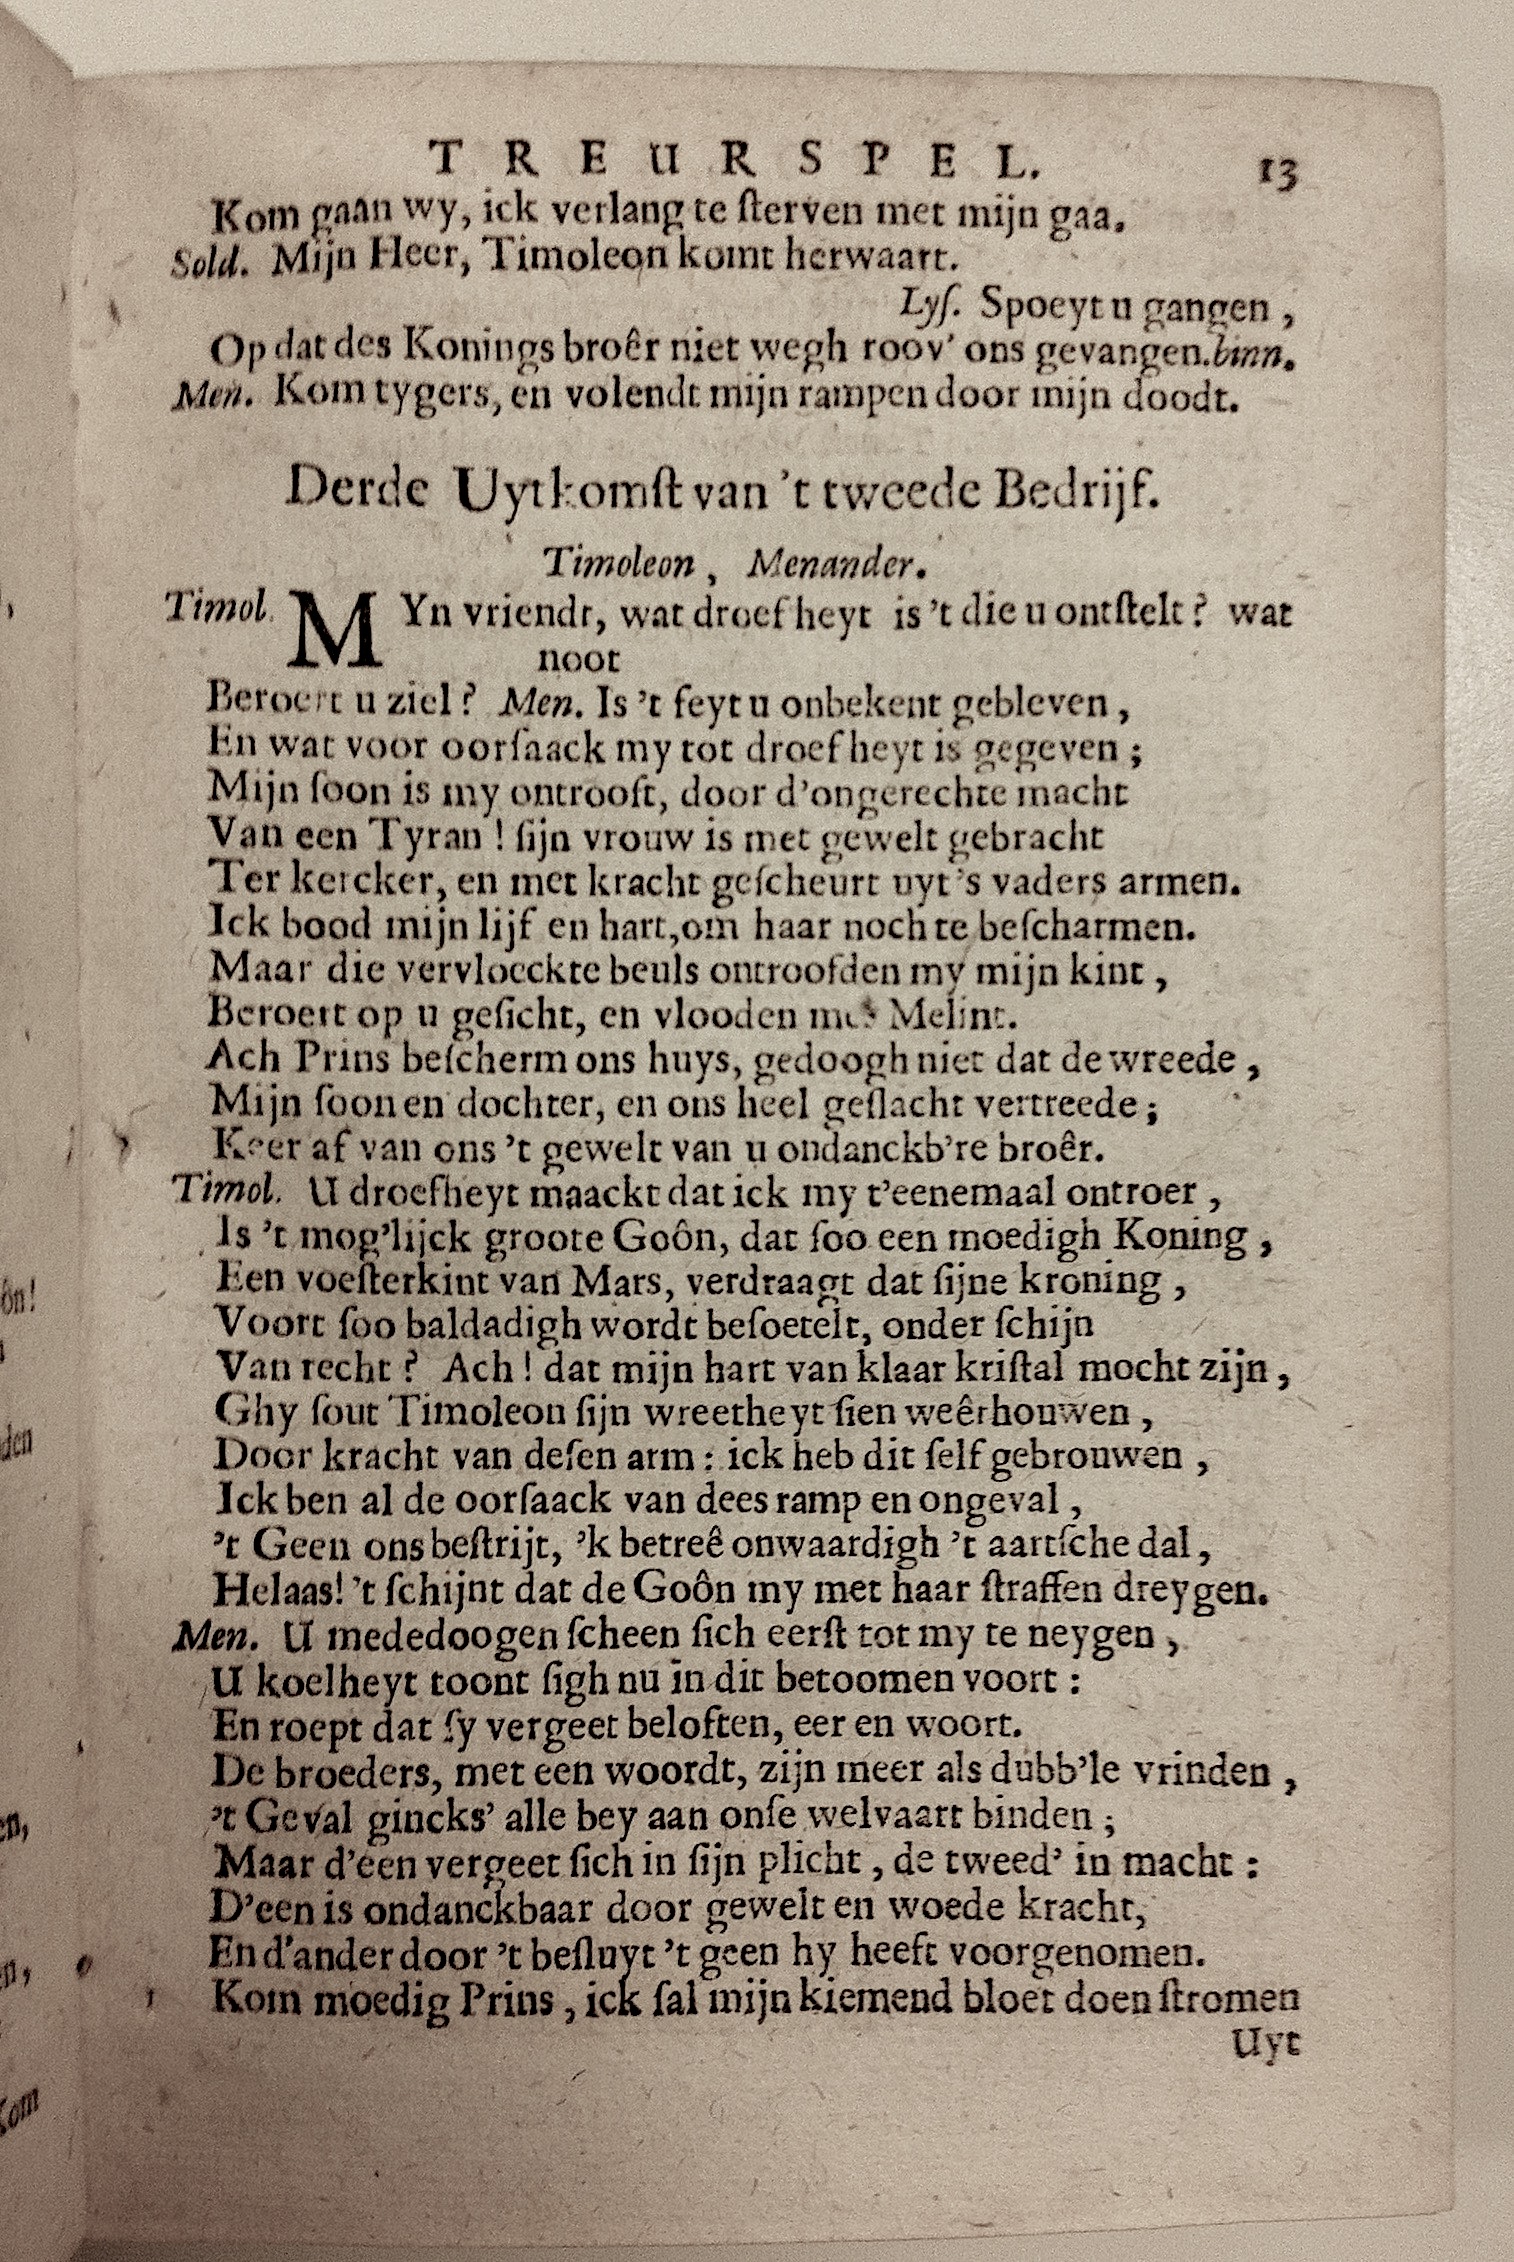 TREURSPEL. 13
Kom gaan wy, ick verlang te ſterven met mijn gaa.
Sold. Mijn Heer, Timoleon komt herwaart.
Lyſ. Spoeyt u gangen,
Op dat des Konings broêr niet wegh roov' ons gevangen. binn.
Men. Kom tygers, en volendt mijn rampen door mijn doodt.
Derde Uytkomſt van 't tweede Bedrijf.
Timoleon, Menander.
Timol. MYn vriendt, wat droefheyt is 't die u ontſtelt? wat
noot
Beroert u ziel? Men. Is 't feyt u onbekent gebleven,
En wat voor oorſaack my tot droefheyt is gegeven;
Mijn ſoon is my ontrooft, door d'ongerechte macht
Van een Tyran! ſijn vrouw is met gewelt gebracht
Ter kercker, en met kracht geſcheurt uyt 's vaders armen.
Ick bood mijn lijf en hart, om haar noch te beſcharmen.
Maar die vervloeckte beuls ontroofden my mijn kint,
Beroert op u geſicht, en vlooden met Melint.
Ach Prins beſcherm ons huys, gedoogh niet dat de wreede,
Mijn ſoon en dochter, en ons heel geſlacht vertreede;
Keer af van ons 't gewelt van u ondanckb're broêr.
Timol. U droefheyt maackt dat ick my t'eenemaal ontroer,
Is 't mog'lijck groote Goôn, dat ſoo een moedigh Koning,
Een voeſterkint van Mars, verdraagt dat ſijne kroning,
Voort ſoo baldadigh wordt beſoetelt, onder ſchijn
Van recht? Ach! dat mijn hart van klaar kriſtal mocht zijn,
Ghy ſout Timoleon ſijn wreetheyt ſien weêrhouwen,
Door kracht van deſen arm: ick heb dit ſelf gebrouwen,
Ick ben al de oorſaack van dees ramp en ongeval,
't Geen ons beſtrijt, 'k betreê onwaardigh 't aartſche dal,
Helaas! 't ſchijnt dat de Goôn my met haar ſtraffen dreygen.
Men. U mededoogen ſcheen ſich eerſt tot my te neygen,
U koelheyt toont ſigh nu in dit betoomen voort:
En roept dat ſy vergeet beloften, eer en woort.
De broeders, met een woordt, zijn meer als dubb'le vrinden,
't Geval gincks' alle bey aan onſe welvaart binden;
Maar d'een vergeet ſich in ſijn plicht, de tweed' in macht:
D'een is ondanckbaar door gewelt en woede kracht,
En d'ander door 't beſluyt 't geen hy heeft voorgenomen.
Kom moedig Prins, ick ſal mijn kiemend bloet doen ſtromen
Uyt
ôn!
den
en,
Kom